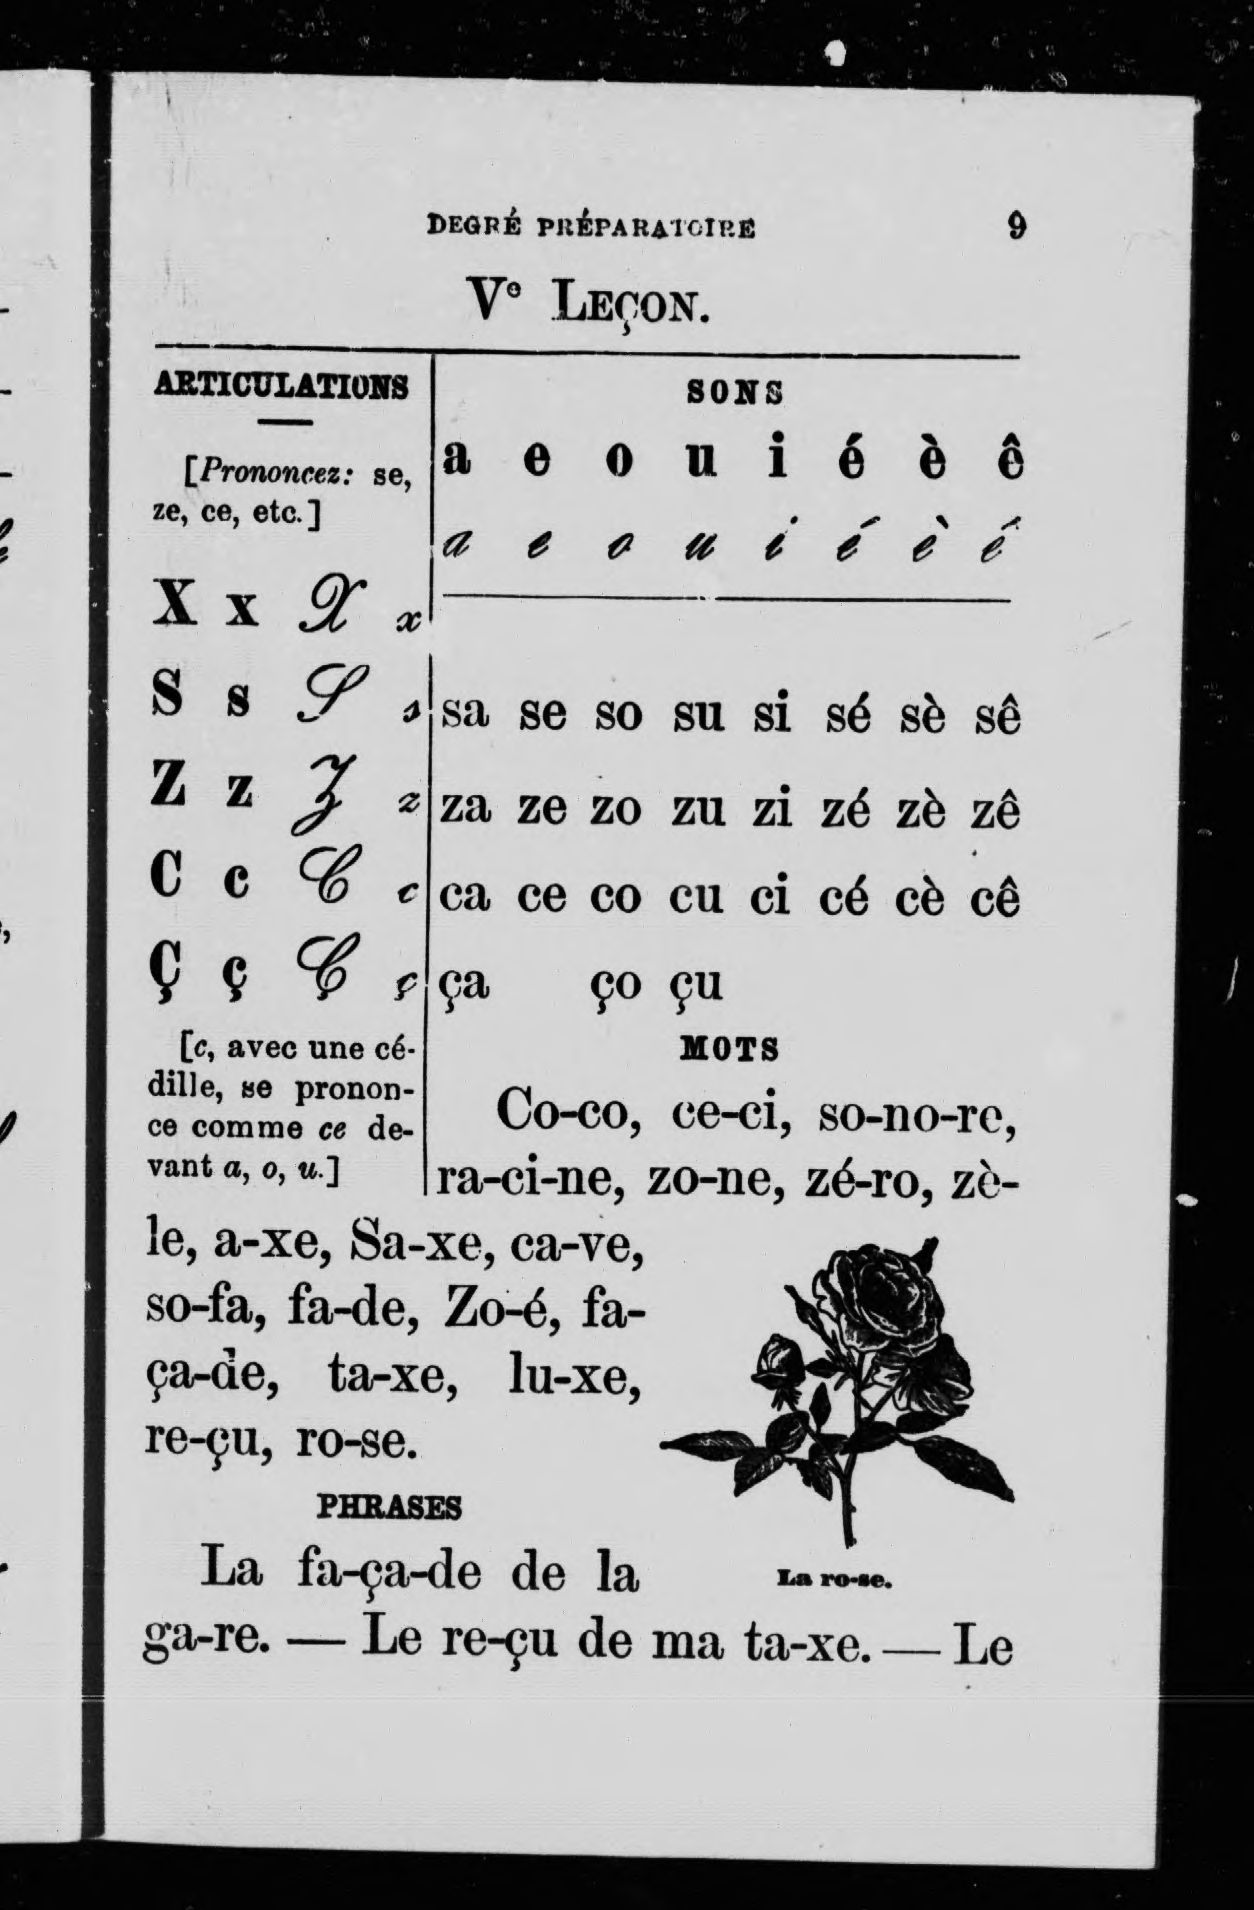 DEGRÉ PRÉPARATOIRE 9
Vᵉ LEÇON.
ARTICULATIONS
[Prononcez: se,
ze, ce, etc.]
X x X x
S s S s
Z z Z z
C c C c
Ç ç Ç ç
[c, avec une cé-
dille, se pronon-
ce comme ce de-
vant a, o, u.]
SONS
a e o u i é è ê
a e o u i é è ê
sa se so su si sé sè sê
za ze zo zu zi zé zè zê
ca ce co cu ci cé cè cê
ça ço çu
MOTS
Co-co, ce-ci, so-no-re,
ra-ci-ne, zo-ne, zé-ro, zè-
le, a-xe, Sa-xe, ca-ve,
so-fa, fa-de, Zo-é, fa-
ça-de, ta-xe, lu-xe,
re-çu, ro-se.
La ro-se.
PHRASES
La fa-ça-de de la
ga-re. — Le re-çu de ma ta-xe. — Le